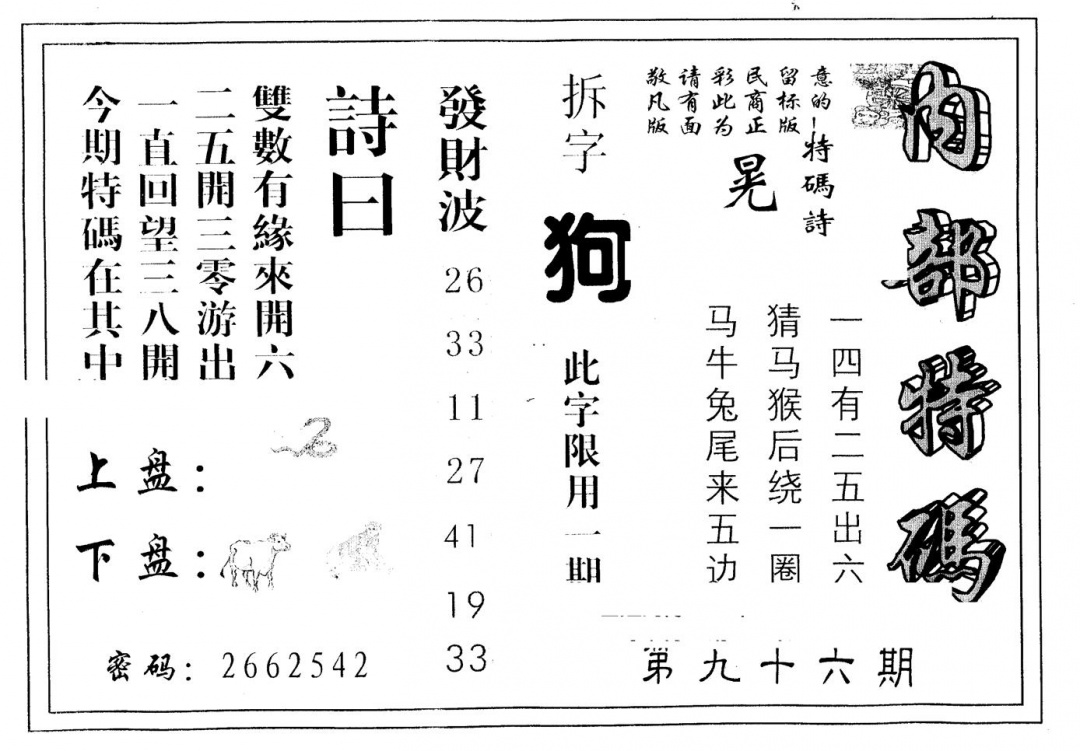 内部特碼
敬请彩民留意
凡有此商标的
版面为正版-
特碼詩
晃
一四有二五出六
猜马猴后绕一圈
马牛兔尾来五边
第九十六期
拆字
狗
此字限用一期
發財波
26
33
11
27
41
19
33
詩曰
雙數有緣來開六
二五開三零游出
一直回望三八開
今期特碼在其中
上盘：
下盘：
密码：2662542